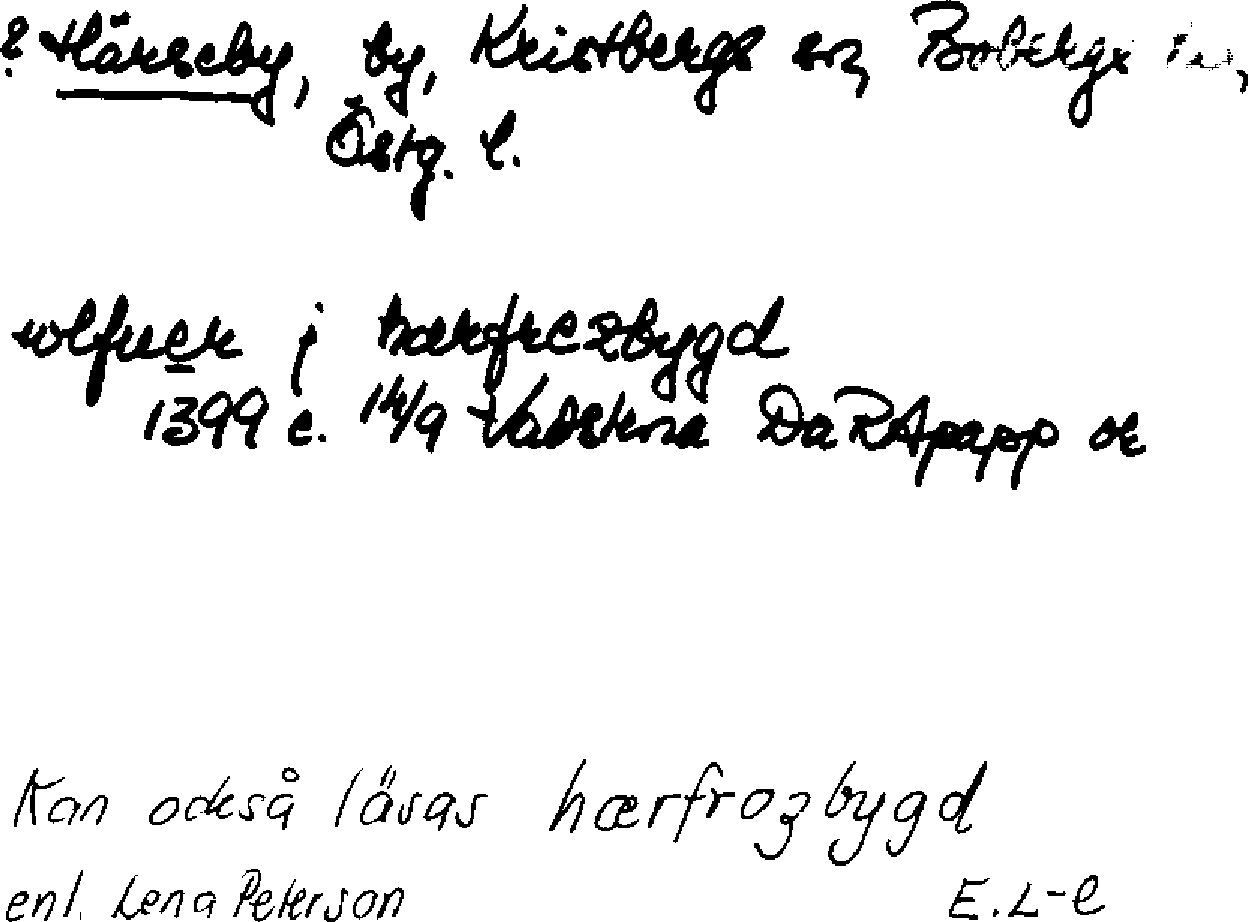 ? Härseby, by, Kristbergs sn, Bobergs
Östg. l.
wlfuer j hærfrezbygd
1399 c. 14/9 Vadstena DaRApapp or
Kan också läsas hærfrozbygd
enl. Lena Peterson E.L-e